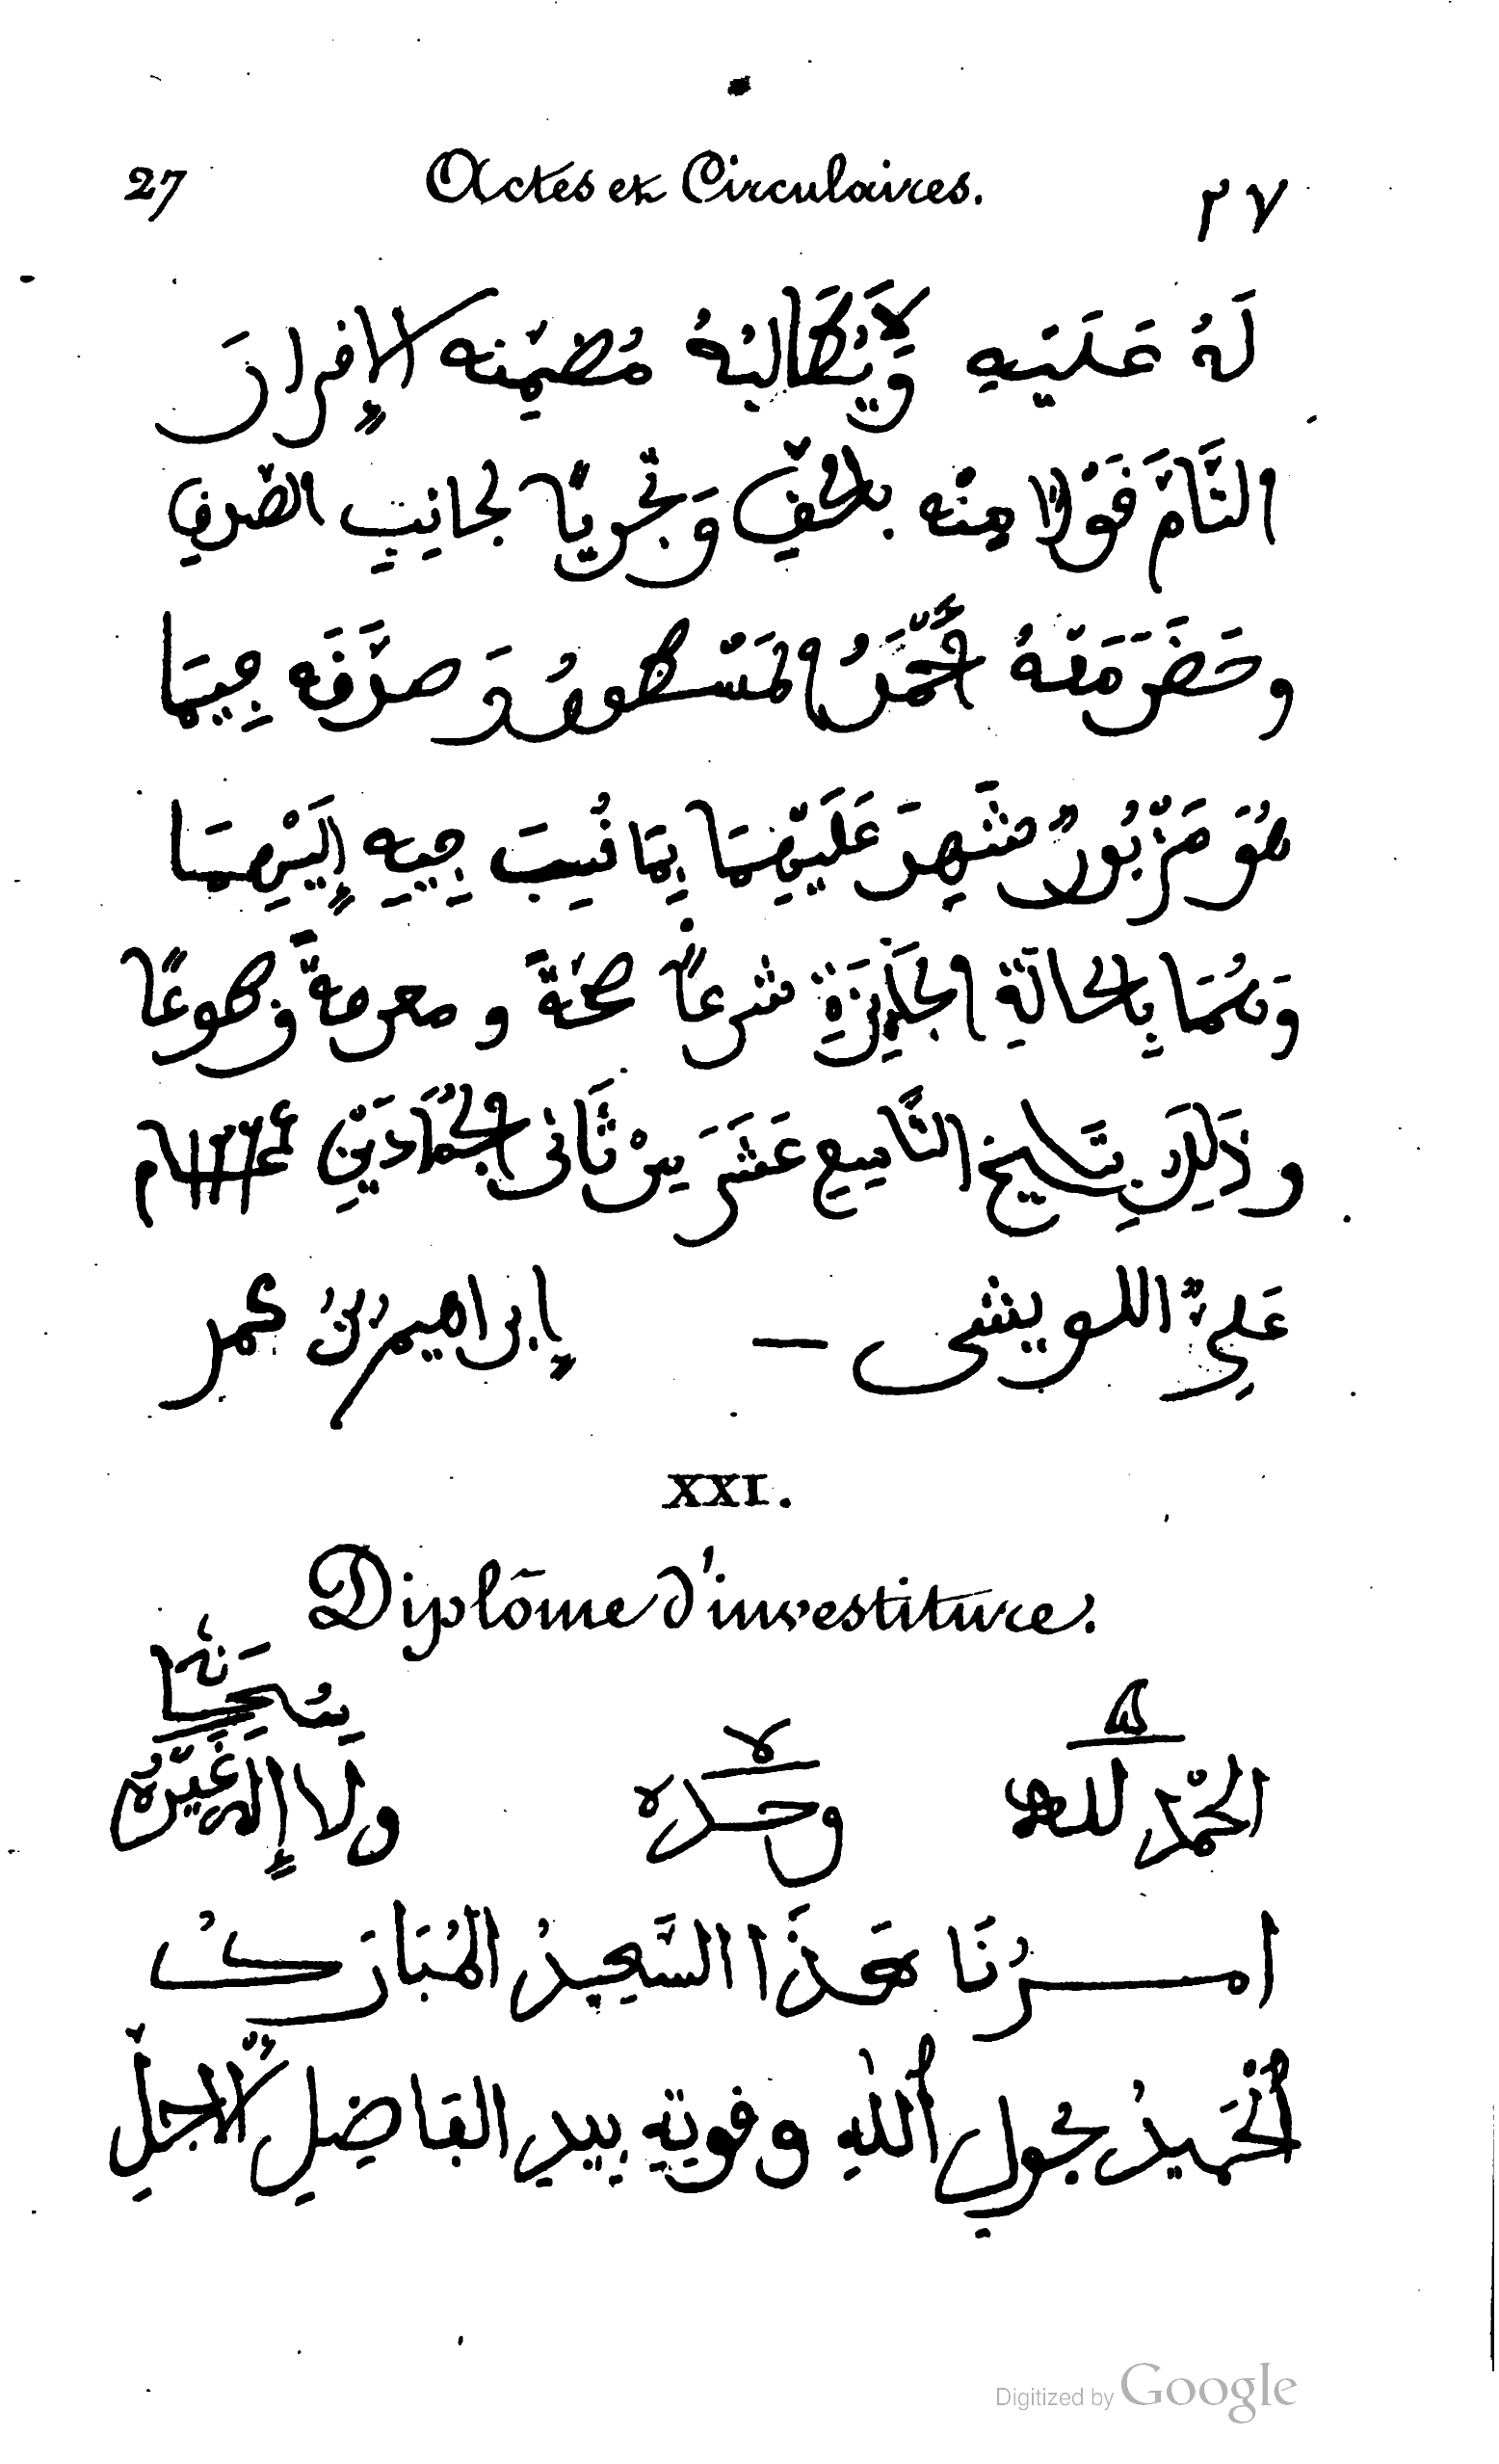 27 Actes et Circulaires. ٢٧
لَهُ عَلَيْهِ وَلَا يُطَالِبُهُ مُضَمِّنه الإقرارَ
التَّامَّ قَوْلا مِنْه بالحقِّ وَتَحَرِّيًا لجانِبِ الصّدقِ
وحَضَرَ مَعَهُ مُحَمَّدُ المَسْطورُ وَصدّقَه فِيمَا
هُوَ مَزْبُورٌ شهِدَ عَلَيْهِمَا بِمَا نُسِبَ فِيهِ إِلَيْهِمَا
وَهُمَا بِالحالَةِ الجَائِزَةِ شرعاً صحّةً ومعرفةً وطوعًا
وذَلِكَ بِتَاريخ التَّاسِع عَشَرَ مِنْ ثَانى الجُمَادَيَيْنِ
عَلِيٌّ اللويشى — إبراهيم بْنُ عمر
XXI.
Diplôme d'investiture.
الحمْد لله وحده ولا إله غَيْرُه
امرُنَا هَذَا السَّعِيدُ المُبَارَكُ
الحَمِيدُ بحول اللهِ وقوتِه بِيدِ الفَاضِلِ الأجلِّ
Digitized by Google